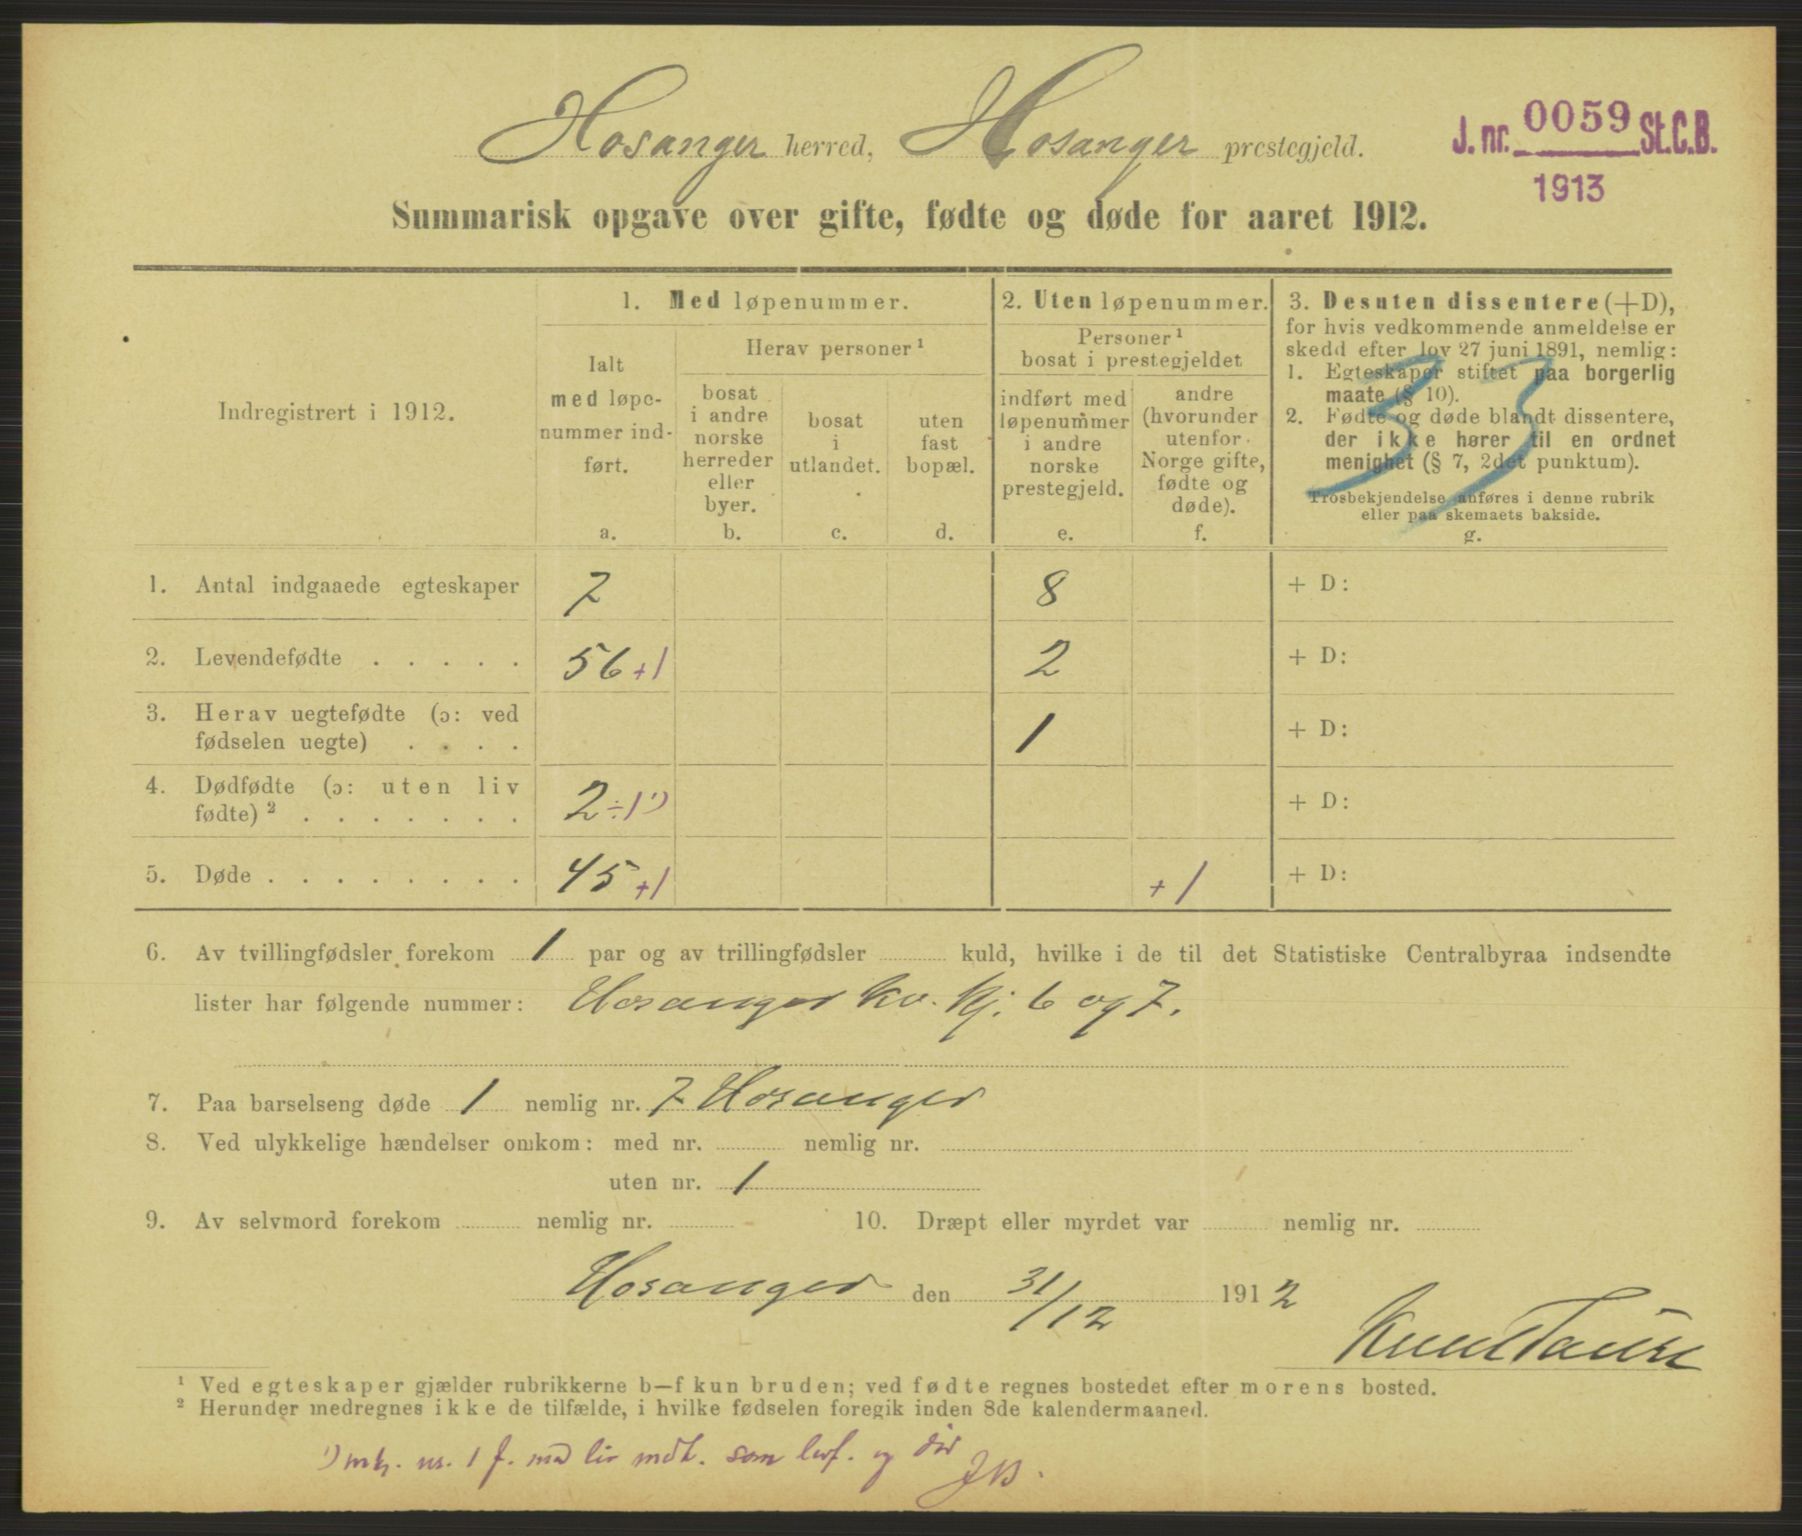 Hosanger herred, Hosanger prestegjeld.
J. nr. 0059 St.C.B.
1913
Summarisk opgave over gifte, fødte og døde for aaret 1912.
Indregistrert i 1912.
1. Med løpenummer.
Ialt
med løpe-
nummer ind-
ført.
a.
Herav personer ¹
bosat
i andre
norske
herreder
eller
byer.
b.
bosat
i
utlandet.
c.
uten
fast
bopæl.
d.
2. Uten løpenummer.
Personer ¹
bosat i prestegjeldet
indført med
løpenummer
i andre
norske
prestegjeld.
e.
andre
(hvorunder
utenfor
Norge gifte,
fødte og
døde).
f.
3. Desuten dissentere (+D),
for hvis vedkommende anmeldelse er
skedd efter lov 27 juni 1891, nemlig:
1. Egteskaper stiftet paa borgerlig
maate (§ 10).
2. Fødte og døde blandt dissentere,
der ikke hører til en ordnet
menighet (§ 7, 2det punktum).
Trosbekjendelse anføres i denne rubrik
eller paa skemaets bakside.
g.
33
1. Antal indgaaede egteskaper 7 8 + D:
2. Levendefødte . . . . . 56 +1 2 + D:
3. Herav uegtefødte (ɔ: ved
fødselen uegte) . . . . 1 + D:
4. Dødfødte (ɔ: uten liv
fødte) ² . . . . . . . 2 ÷1 ¹) + D:
5. Døde . . . . . . . . 45 +1 +1 + D:
6. Av tvillingfødsler forekom 1 par og av trillingfødsler kuld, hvilke i de til det Statistiske Centralbyraa indsendte
lister har følgende nummer: Hosanger kv. kj. 6 og 7.
7. Paa barselseng døde 1 nemlig nr. 7 Hosanger
8. Ved ulykkelige hændelser omkom: med nr. nemlig nr.
uten nr. 1
9. Av selvmord forekom nemlig nr. 10. Dræpt eller myrdet var nemlig nr.
Hosanger den 31/12 1912
Knut
¹ Ved egteskaper gjælder rubrikkerne b—f kun bruden; ved fødte regnes bostedet efter morens bosted.
² Herunder medregnes ikke de tilfælde, i hvilke fødselen foregik inden 8de kalendermaaned.
¹) mk. nr. 1 f. med liv mdt. som levf. og død